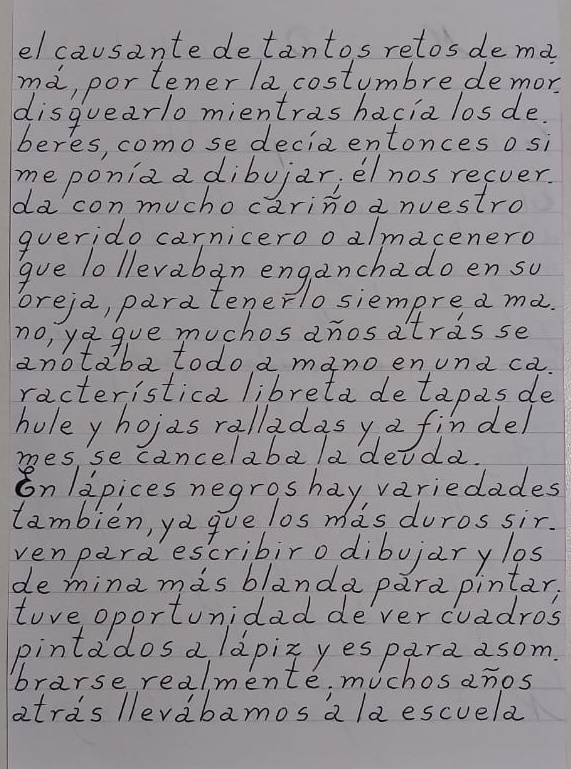 el causante de tantos retos de ma.
má, por tener la costumbre de mor.
disquearlo mientras hacía los de.
beres, como se decía entonces o si
me ponía a dibujar; él nos recuer.
da con mucho cariño a nuestro
querido carnicero o almacenero
que lo llevaban enganchado en su
oreja, para tenerlo siempre a ma.
no, ya que muchos años atrás se
anotaba todo a mano en una ca.
racterística libreta de tapas de
hule y hojas ralladas y a fin del
mes se cancelaba la deuda.
En lápices negros hay variedades
también, ya que los más duros sir.
ven para escribir o dibujar y los
de mina más blanda para pintar;
tuve oportunidad de ver cuadros
pintados a lápiz y es para asom.
brarse realmente; muchos años
atrás llevábamos a la escuela